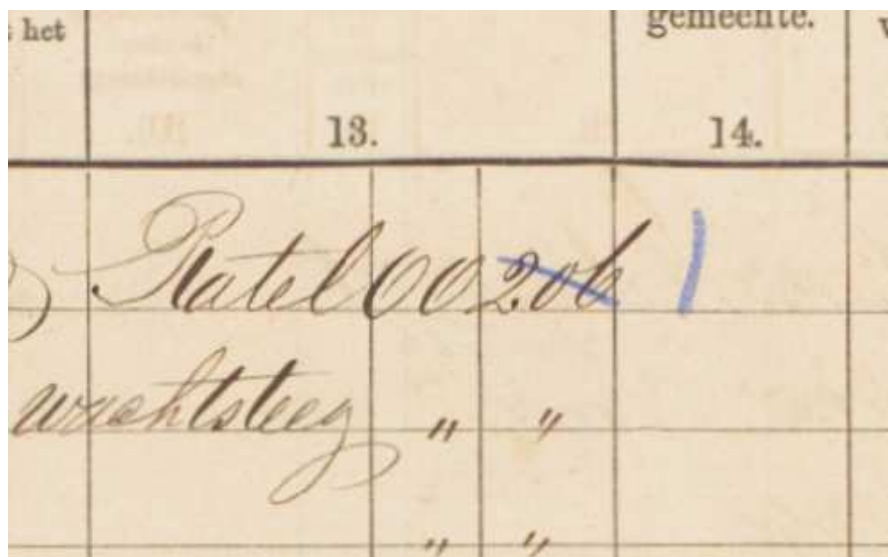 het gemeente.
13. 14.
Ratel OO 206 1
wachtsteeg " "
" "